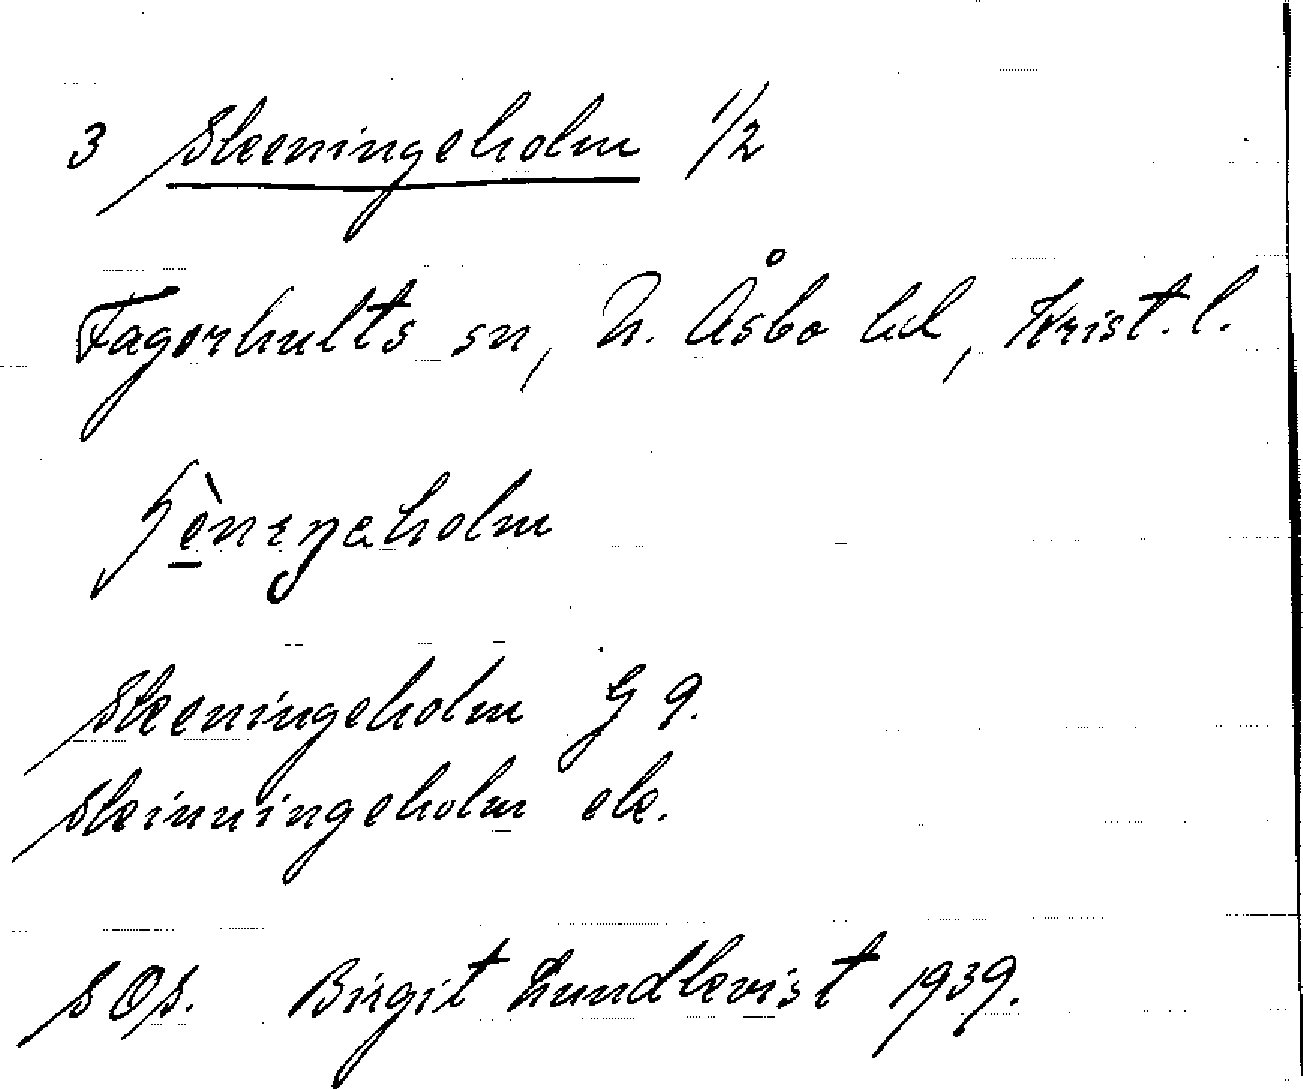 3 Skeningeholm 1/2
Fagerhults sn, N. Åsbo hd, Krist. l.
ɧè̱nɪŋaholm
Skeningeholm G 9.
Skinningeholm ek.
SOS. Birgit Lundkvist 1939.